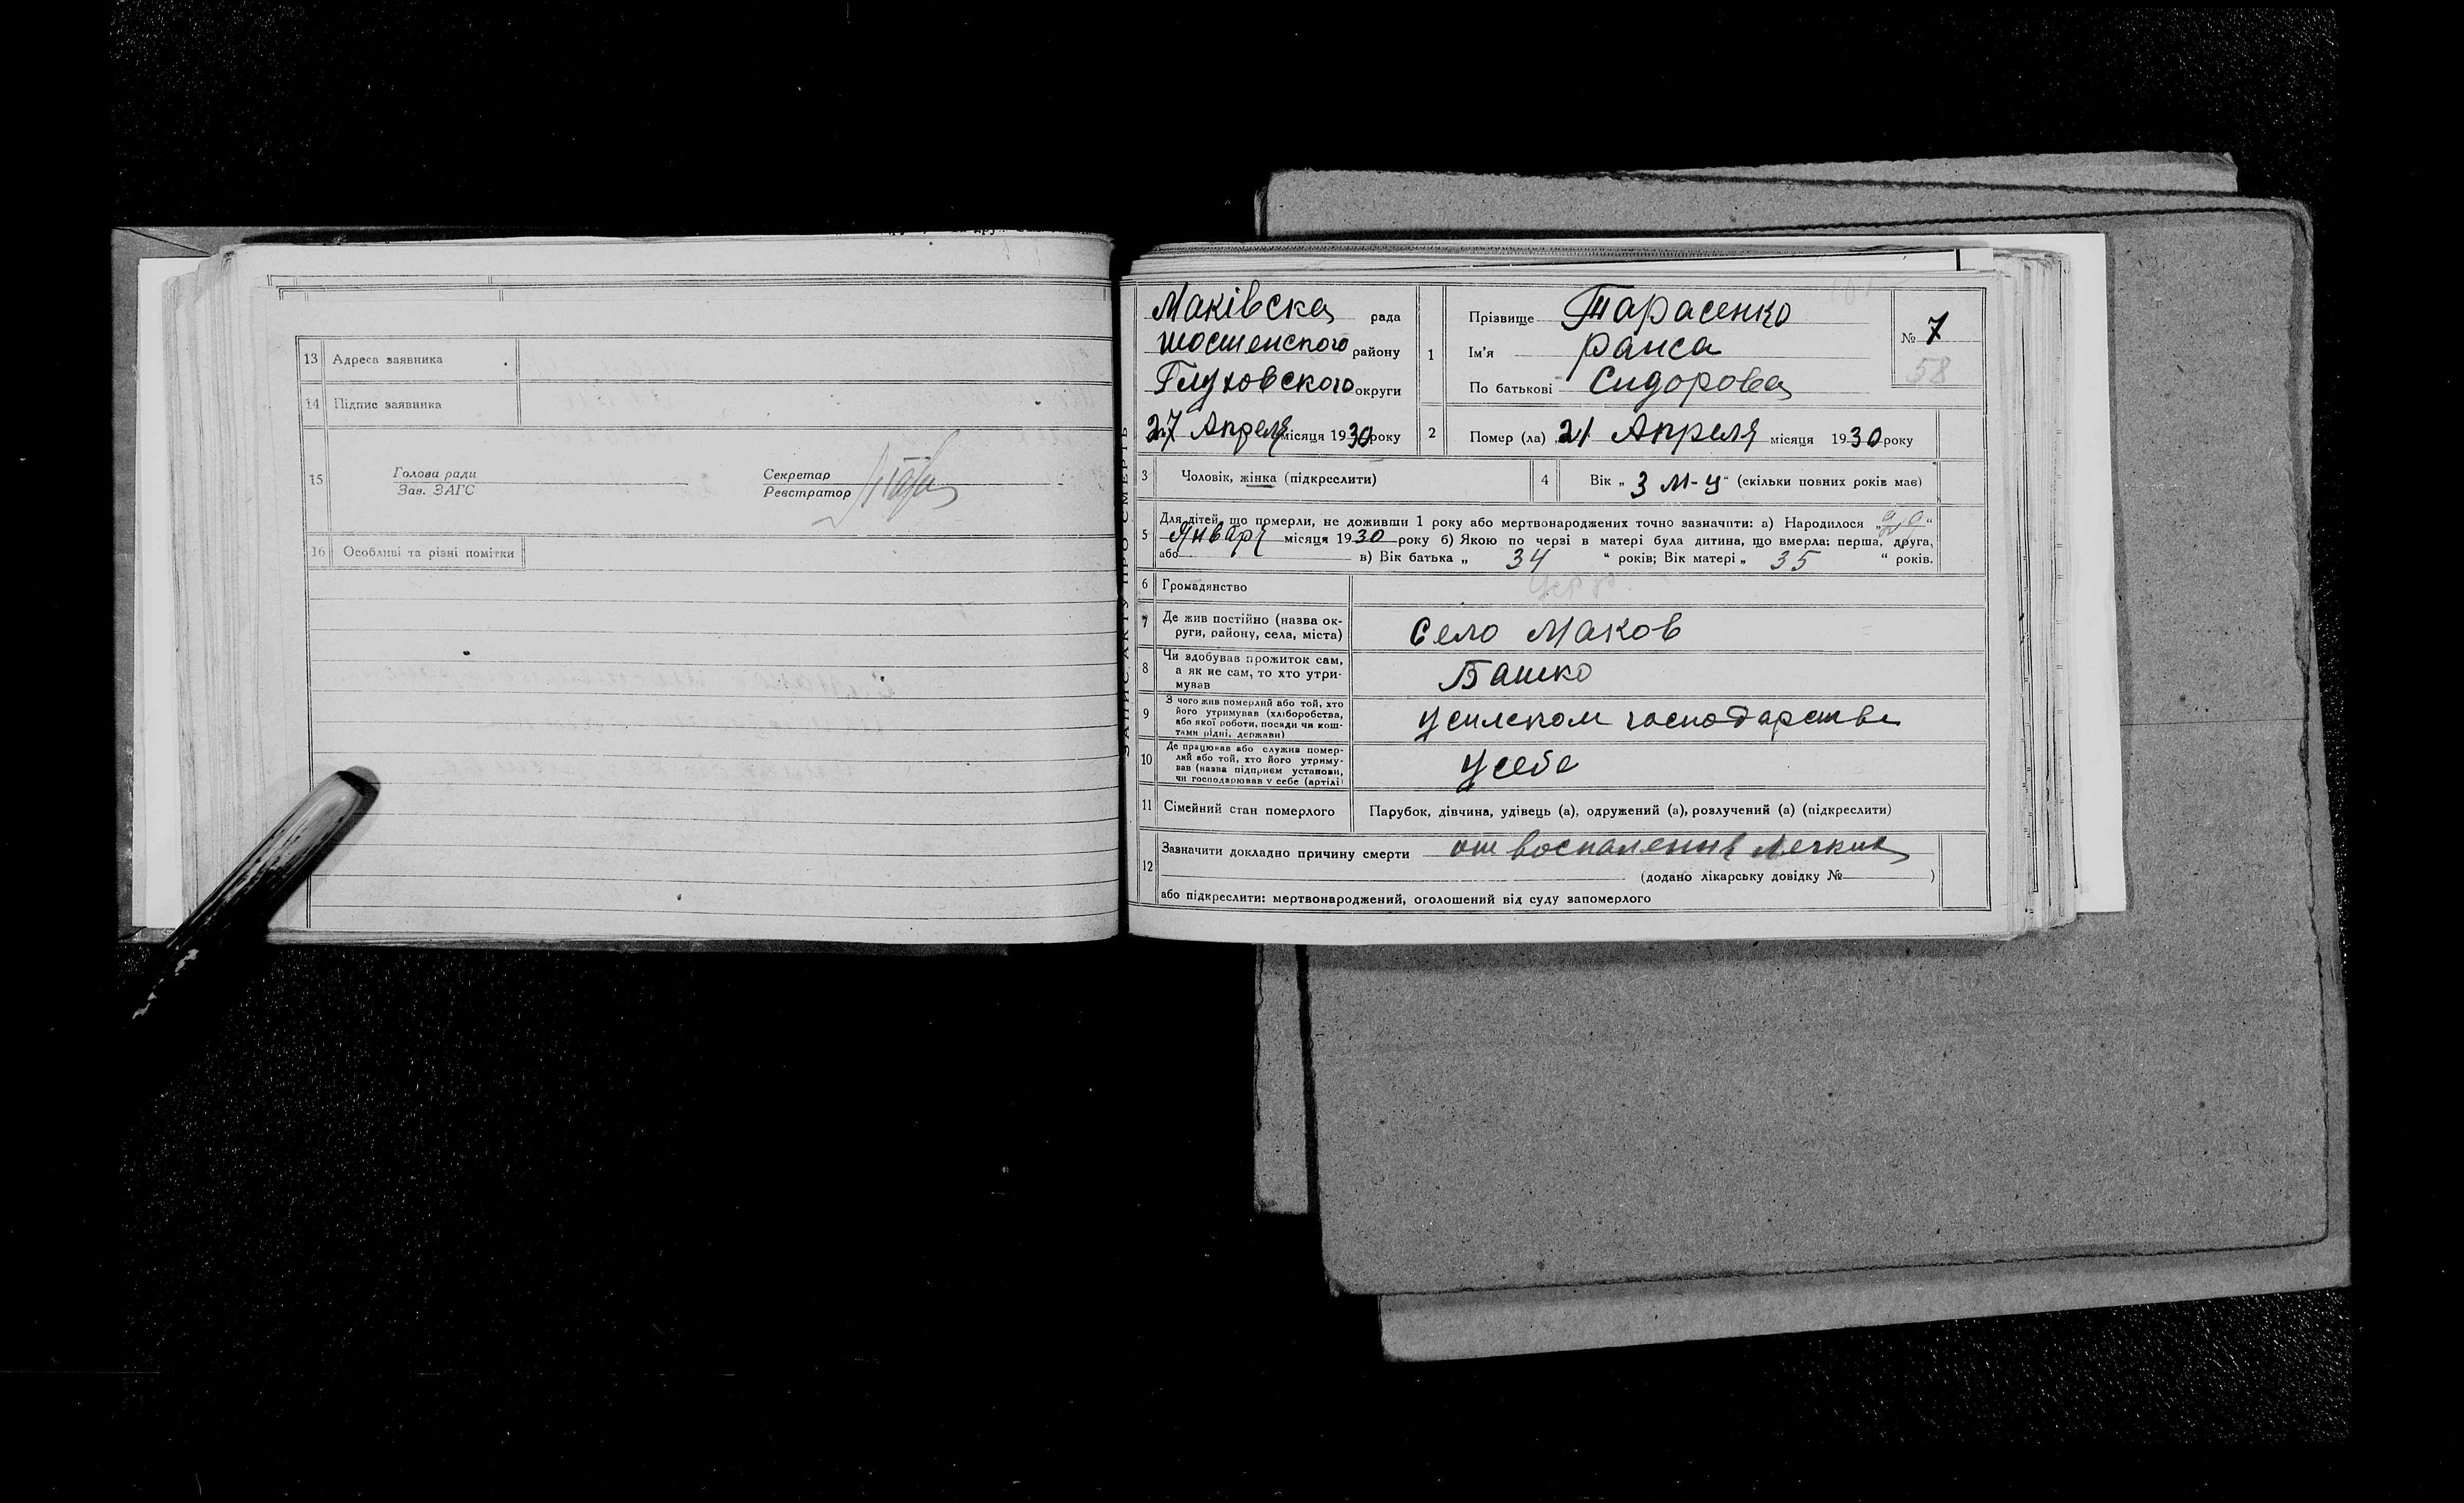 13 Адреса заявника
14 Підпис заявника
15 Голова ради
Зав. ЗАГС
Секретар
Реєстратор
16 Особливі та різні помітки
ЗАПИС АКТУ ПРО СМЕРТЬ
Маківска рада
Шостенского району
Глуховского округи
27 Апреля місяця 1930 року
1 Прізвище Тарасенко
Ім'я Раиса
По батькові Сидорова
№ 7
58
2 Помер (ла) 21 Апреля місяця 1930 року
3 Чоловік, жінка (підкреслити)
4 Вік „ 3 м-ц " (скільки повних років має)
5 Для дітей, що померли, не доживши 1 року або мертвонароджених точно зазначити: а) Народилося „ "
Января місяця 1930 року б) Якою по черзі в матері була дитина, що вмерла: перша, друга,
або в) Вік батька „ 34 " років; Вік матері „ 35 " років.
6 Громадянство
7 Де жив постійно (назва ок-
руги, району, села, міста)
Село Маков
8 Чи здобував прожиток сам,
а як не сам, то хто утри-
мував
Батько
9 З чого жив померлий або той, хто
його утримував (хліборобства,
або якої роботи, посади чи кош-
тами рідні, держави)
У сильском господарстві
10 Де працював або служив помер-
лий або той, хто його утриму-
вав (назва підприєм установи,
чи господарював у себе (артілі)
У себе
11 Сімейний стан померлого
Парубок, дівчина, удівець (а), одружений (а), розлучений (а) (підкреслити)
12 Зазначити докладно причину смерти от воспаления легких
(додано лікарську довідку № )
або підкреслити: мертвонароджений, оголошений від суду запомерлого